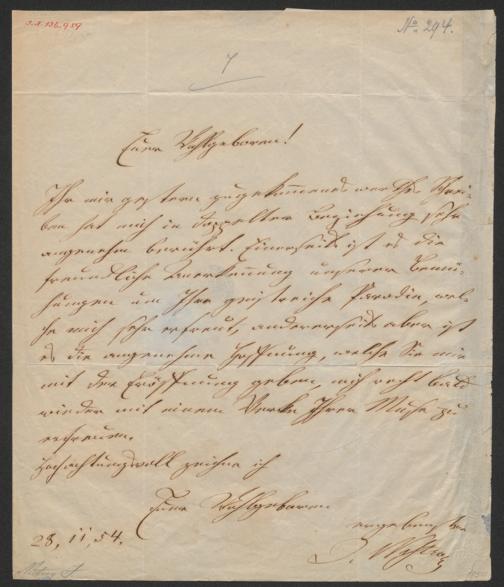 I.N. 136.959
No 294.
7
Euer Wohlgeboren!
Ihr mir gestern zugekommenes werthes Schrei-
ben hat mich in doppelter Beziehung sehr
angenehm berührt. Einerseits ist es die
freundliche Anerkennung unserer Bemü-
hungen um Ihre geistreiche Parodie, wel-
che mich sehr erfreut, andererseits aber ist
es die angenehme Hoffnung, welche Sie mir
mit der Eröffnung geben, mich recht bald
wieder mit einem Werke Ihrer Muse zu
erfreuen.
Hochachtungsvoll zeichne ich
Euer Wohlgeboren
ergebenster
28, 11, 54.